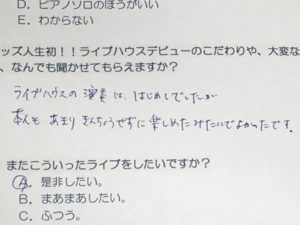 D．ピアノソロのほうがいい
E．わからない
ッズ人生初！！ライブハウスデビューのこだわりや、大変な
、なんでも聞かせてもらえますか？
ライブハウスの演奏は、はじめてでしたが
本人も あまり きんちょうせずに楽しめたみたいでよかったです。
またこういったライブをしたいですか？
A．是非したい。
B．まあまあしたい。
C．ふつう。